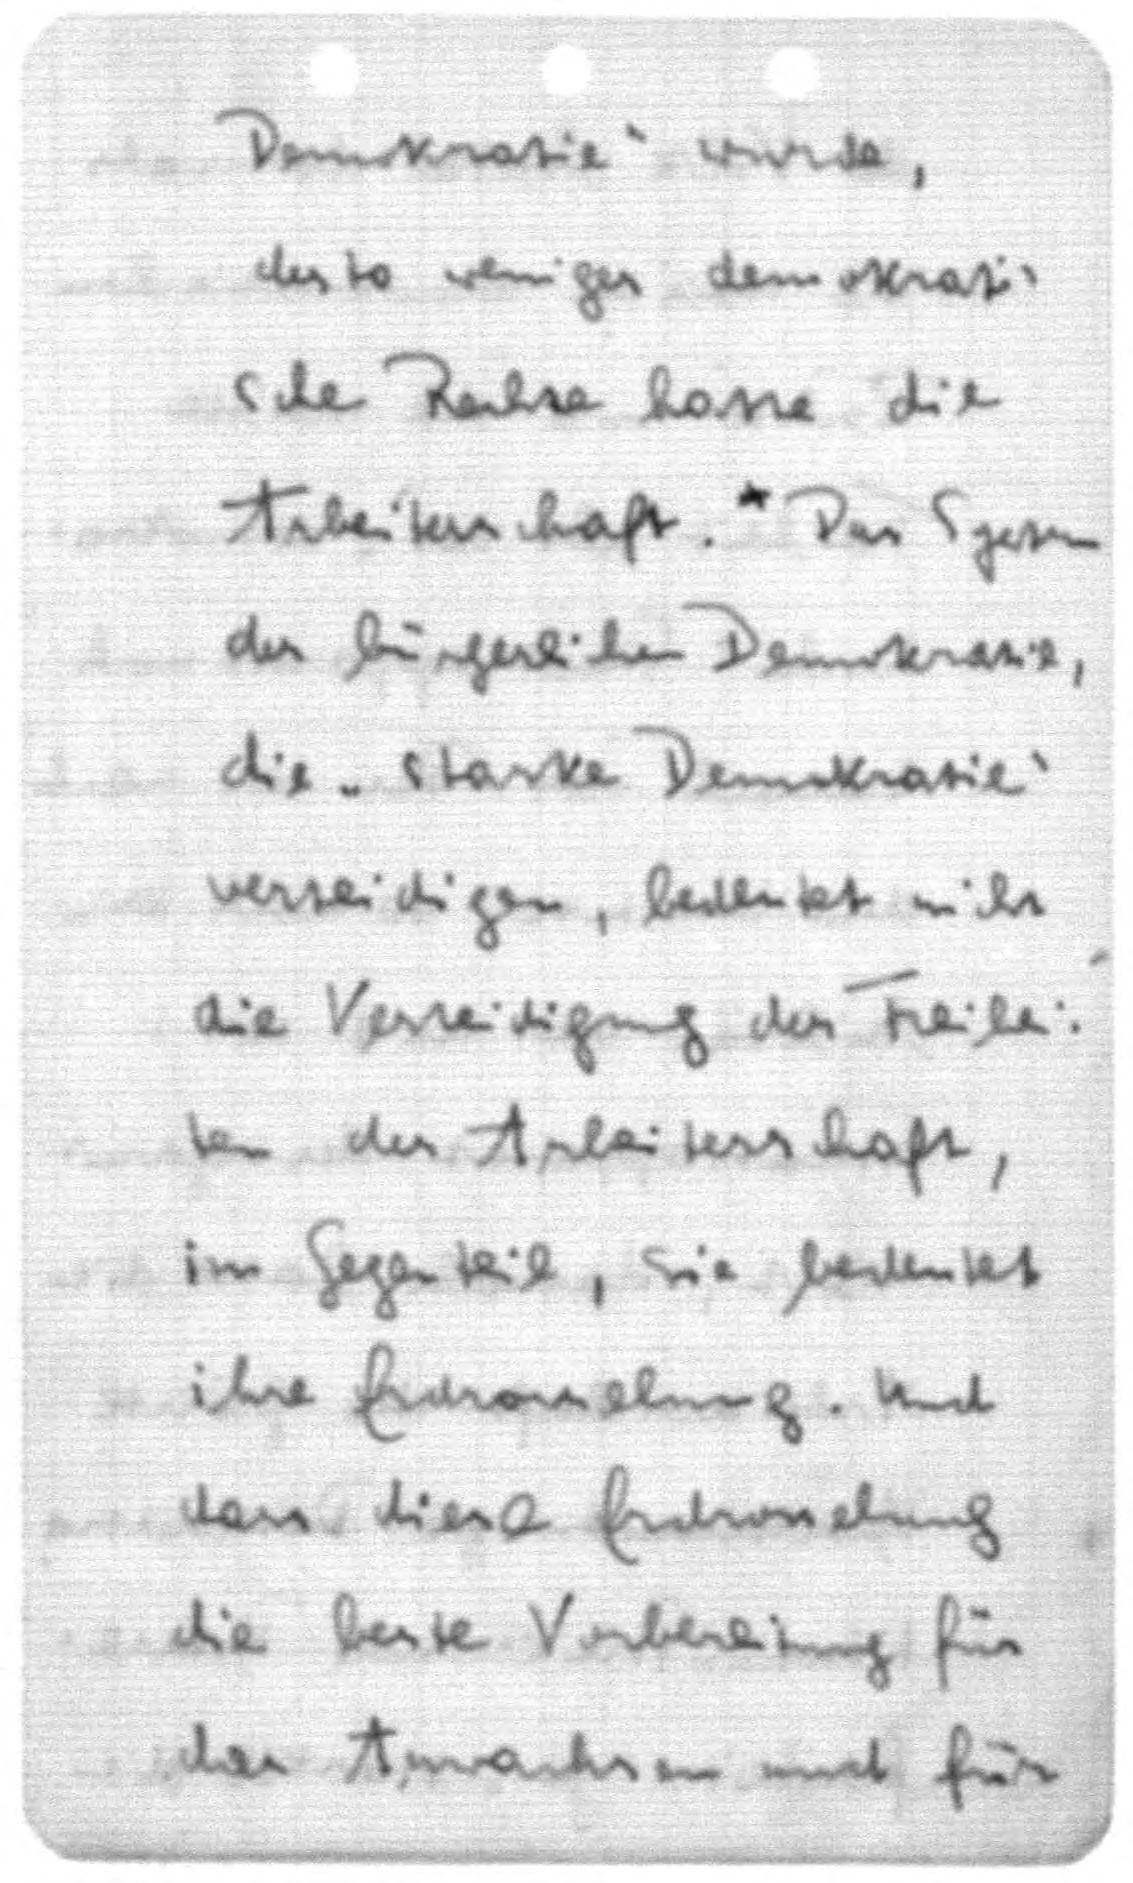 Demokratie" wurde,
desto weniger demokrati-
sche Rechte hatte die
Arbeiterschaft. * Das System
der bürgerlichen Demokratie,
die „starke Demokratie"
verteidigen, bedeutet nicht
die Verteidigung der Freihei-
ten der Arbeiterschaft,
im Gegenteil, sie bedeutet
ihre Erdrosselung. Und
dass diese Erdrosselung
die beste Vorbereitung für
das Anwachsen und für